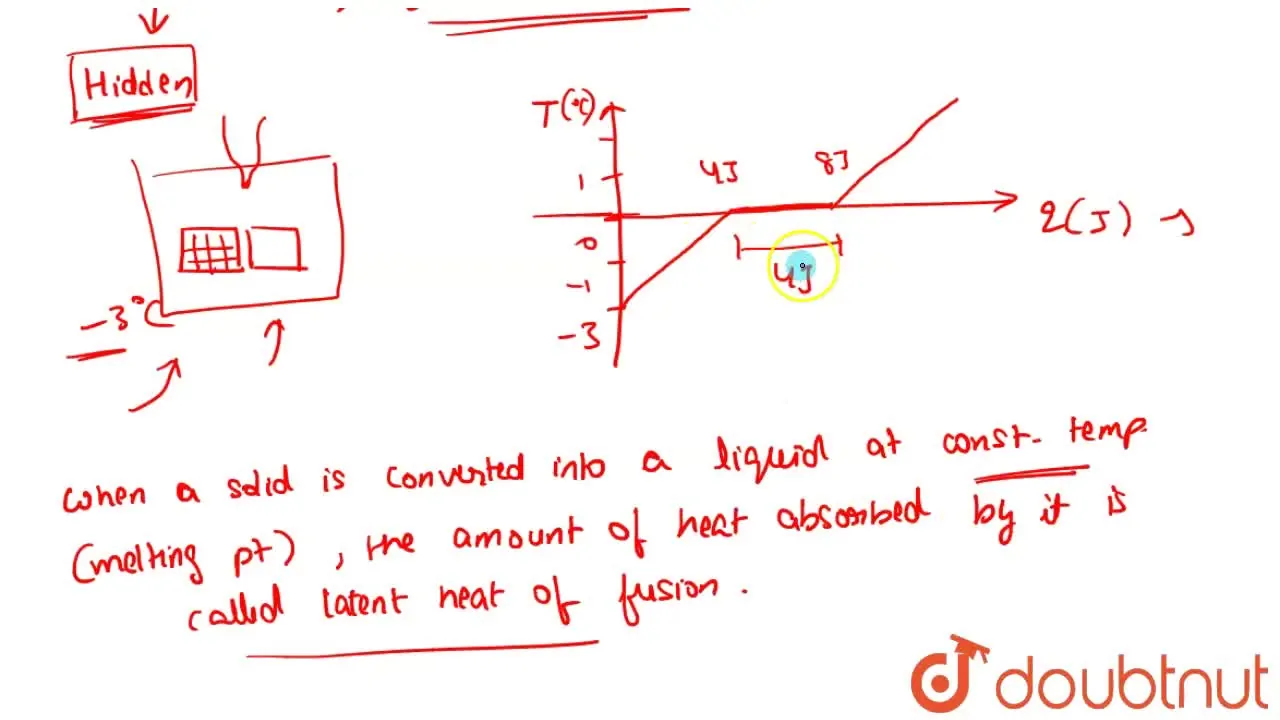 Hidden
T(°C)
1
0
-1
-3
4J
8J
4J
-3°C
when a solid is converted into a liquid at const. temp.
(melting pt), the amount of heat absorbed by it is
called latent heat of fusion.
doubtnut